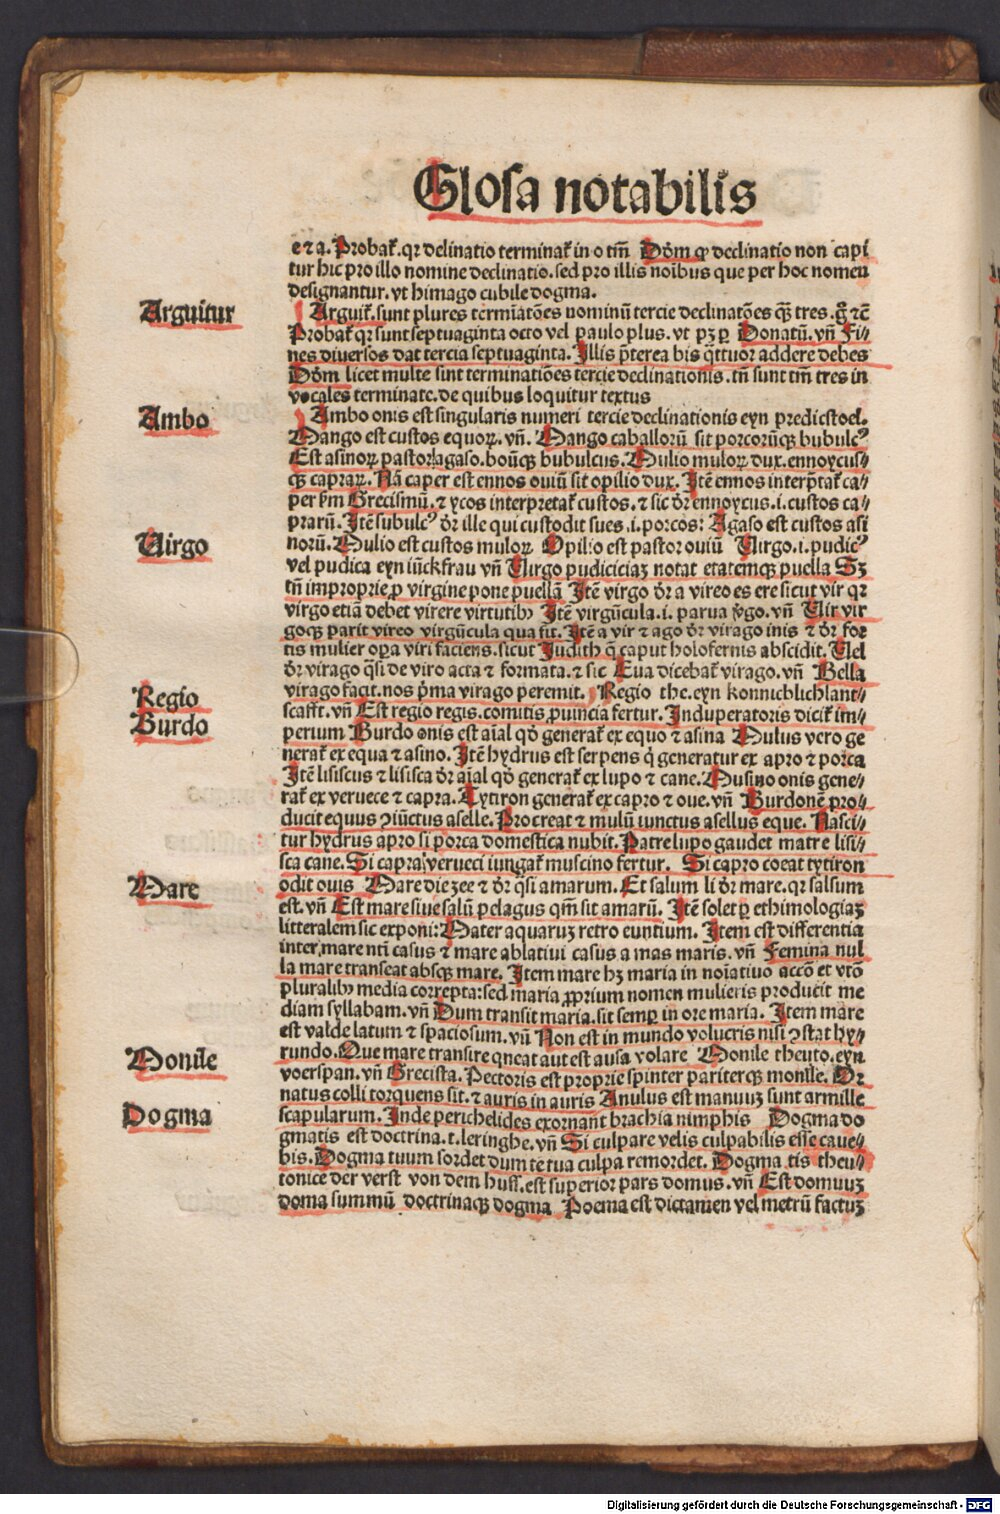 Glosa notabilis
e ⁊ a. Probat̄. qr declinatio terminat̄ in o tm̄ Dōm ꝙ declinatio non capi
tur hic pro illo nomine declinatio. sed pro illis noībus que per hoc nomen
designantur. vt himago cubile dogma.
Arguitur
Arguit̄. sunt plures termīatōes nominū tercie declinatōes qꝫ tres. g̊ ⁊c̄
Probat̄ qr sunt septuaginta octo vel paulo plus. vt pꝫ ꝑ Donatū. vn̄ Fi⸗
nes diversos dat tercia septuaginta. Illis p̄terea bis q̄ttuor addere debes
Dōm licet multe sint terminatiōes tercie declinationis. tn̄ sunt tm̄ tres in
vocales terminate. de quibus loquitur textus
Ambo
Ambo onis est singularis numeri tercie declinationis eyn predicstoel.
Mango est custos equoꝝ. vn̄. Mango caballorū sit porcorūqꝫ bubulcꝰ
Est asinoꝝ pastor agaso. boūqꝫ bubulcus. Mulio muloꝝ dux. ennoycus⸗
qꝫ capraꝝ. Nā caper est ennos ouiū sit opilio dux. Itē ennos interp̄tat̄ ca⸗
per ẜm Grecismū. ⁊ ycos interpretat̄ custos. ⁊ sic dr̄ ennoycus .i. custos ca⸗
prarū. Itē subulcꝰ dr̄ ille qui custodit sues .i. porcos: Agaso est custos asi
norū. Mulio est custos muloꝝ Opilio est pastor ouiū Virgo .i. pudicꝰ
Virgo
vel pudica eyn iūckfrau vn̄ Virgo pudiciciaꝫ notat etatemqꝫ puella Sꝫ
tn̄ improprie ꝓ virgine pone puellā Itē virgo dr̄ a vireo es ere sicut vir qr
virgo etiā debet virere virtutibꝫ Itē virgūcula .i. parua v̄go. vn̄ Vir vir
goqꝫ parit vireo virgūcula qua fit. Itē a vir ⁊ ago dr̄ virago inis ⁊ dr̄ for
tis mulier oꝑa viri faciens. sicut Judith q̄ caput holofernis abscidit. Vel
dr̄ virago q̄si de viro acta ⁊ formata. ⁊ sic Eua dicebat̄ virago. vn̄ Bella
virago facit. nos p̄ma virago peremit. Regio the. eyn konnichlichlant⸗
Regio
scafft. vn̄ Est regio regis. comitis ꝓuincia fertur. Induperatoris dicit̄ im⸗
Burdo
perium Burdo onis est aīal qd̄ generat̄ ex equo ⁊ asina Mulus vero ge
nerat̄ ex equa ⁊ asino. Itē hydrus est serpens q̇ generatur ex apro ⁊ porca
Itē lisiscus ⁊ lisisca dr̄ aīal qd̄ generat̄ ex lupo ⁊ cane. Musino onis gene⸗
rat̄ ex veruece ⁊ capra. Tytiron generat̄ ex capro ⁊ oue. vn̄ Burdonē pro⸗
ducit equus ꝯiūctus aselle. Procreat ⁊ mulū iunctus asellus eque. Nasci⸗
tur hydrus apro si porca domestica nubit. Patre lupo gaudet matre lisi⸗
sca cane. Si capra verueci iungat̄ muscino fertur. Si capro coeat tytiron
odit ouis Mare die zee ⁊ dr̄ q̄si amarum. Et salum li dr̄ mare. qr salsum
Mare
est. vn̄ Est mare siue salū pelagus qm̄ sit amarū. Itē solet ꝑ ethimologiaꝫ
litteralem sic exponi: Mater aquaruꝫ retro euntium. Item est differentia
inter mare nti casus ⁊ mare ablativi casus a mas maris. vn̄ Femina nul
la mare transeat absqꝫ mare. Item mare hꝫ maria in noīatiuo accō et vtō
pluralibꝫ media correpta: sed maria ꝓprium nomen mulieris producit me
diam syllabam. vn̄ Dum transit maria. sit semꝑ in ore maria. Item mare
est valde latum ⁊ spaciosum. vn̄ Non est in mundo volucris nisi ꝯstat hy⸗
rundo. Que mare transire queat aut est ausa volare Monile theuto. eyn
Monile
voerspan. vn̄ Grecista. Pectoris est proprie spinter pariterqꝫ monile. Or
natus colli torquens sit. ⁊ auris in auris Anulus est manuuꝫ sunt armille
scapularum. Inde perichelides exornant brachia nimphis Dogma do
Dogma
gmatis est doctrina. t. leringhe. vn̄ Si culpare velis culpabilis esse caue⸗
bis. Dogma tuum sordet dum te tua culpa remordet. Dogma tis theu⸗
tonice der verst von dem huss. est superior pars domus. vn̄ Est domuuꝫ
doma summū doctrinaqꝫ dogma Poema est dictamen vel metrū factuꝫ
Digitalisierung gefördert durch die Deutsche Forschungsgemeinschaft - DFG